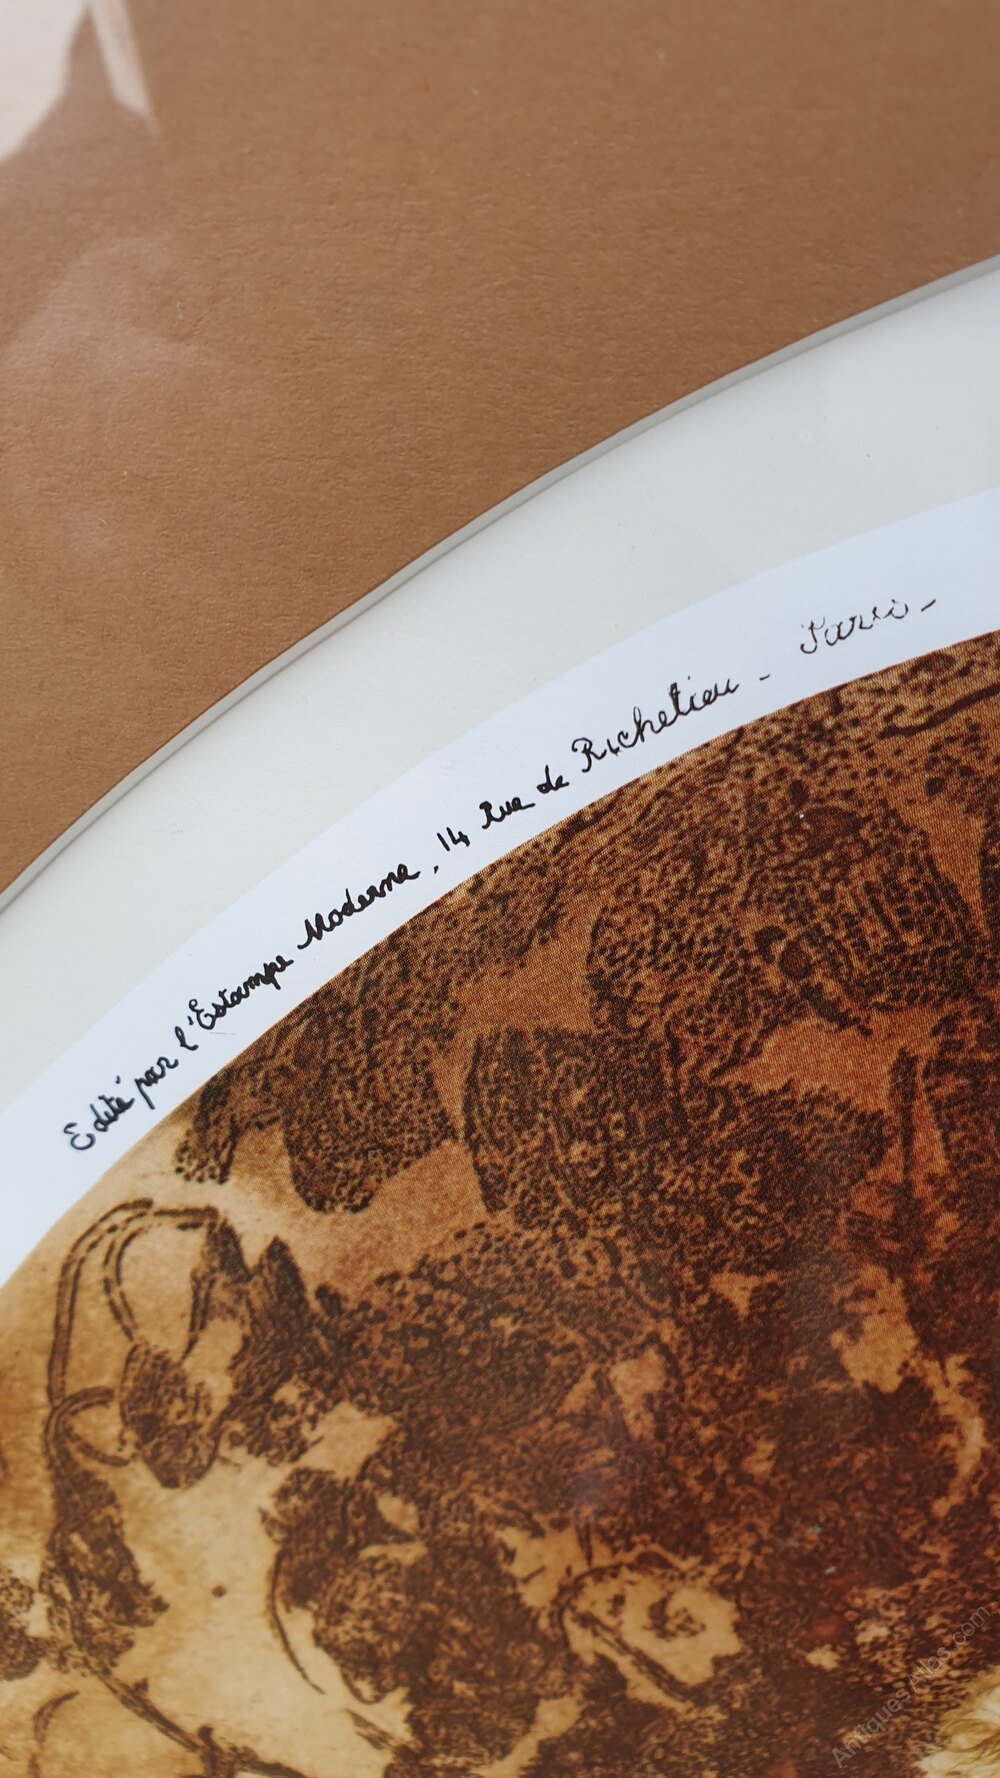 Edité par l'Estampe Moderne, 14 Rue de Richelieu - Paris -
Antiques Atlas.com